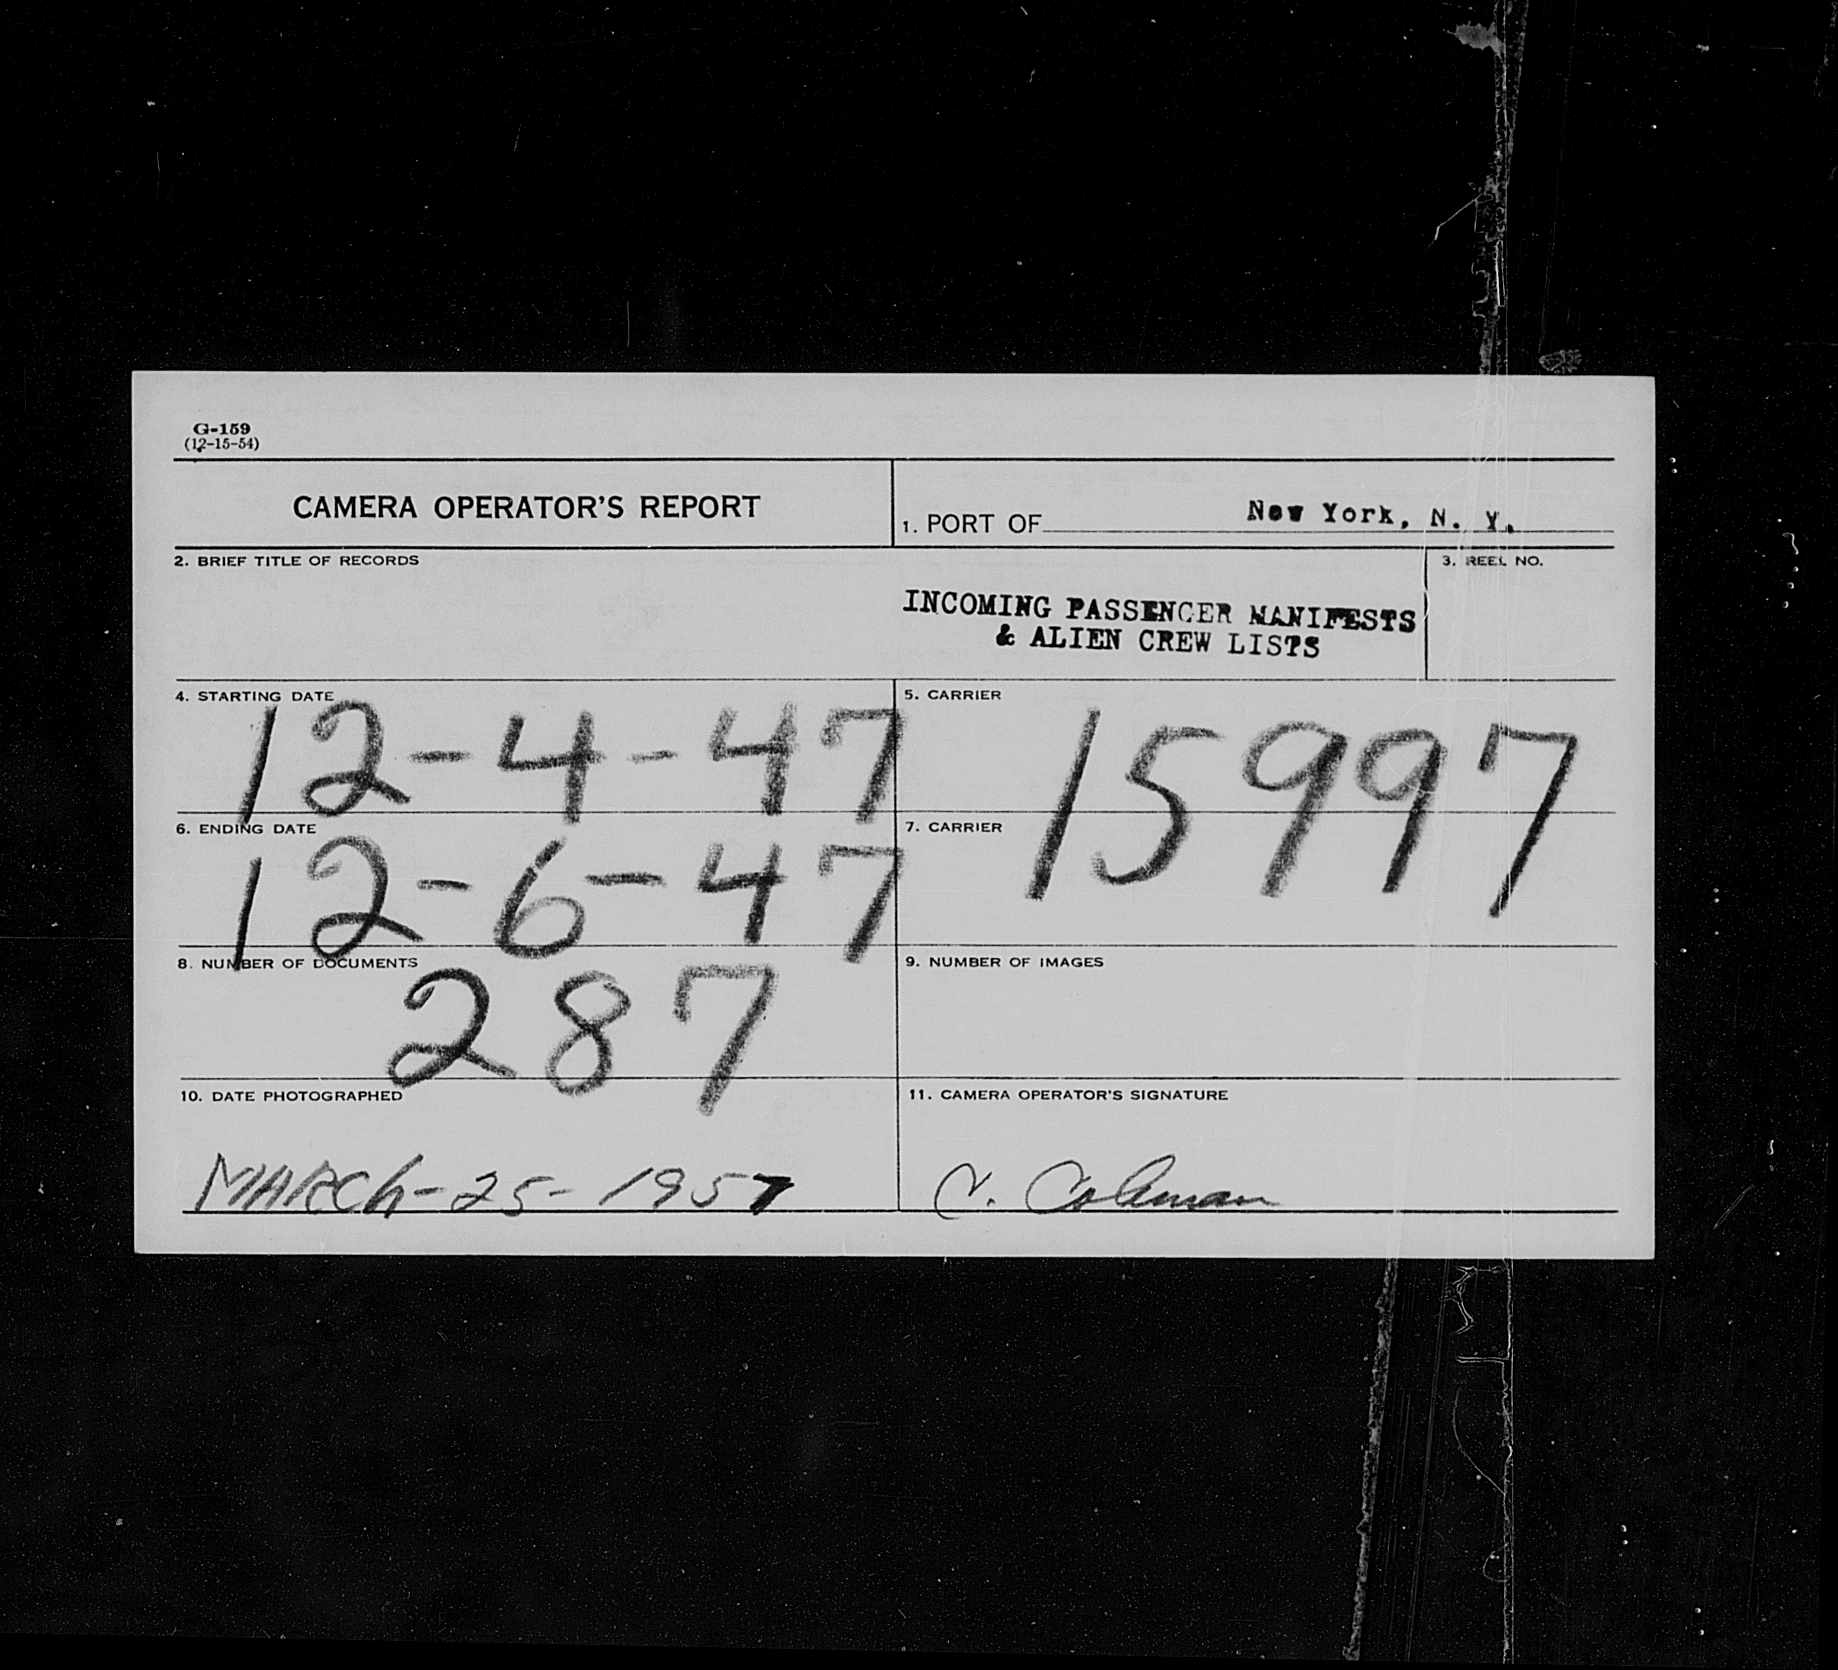 G-159
(12-15-54)
CAMERA OPERATOR'S REPORT
1. PORT OF New York, N. Y.
2. BRIEF TITLE OF RECORDS
3. REEL NO.
INCOMING PASSENGER MANIFESTS
& ALIEN CREW LISTS
4. STARTING DATE
12-4-47
5. CARRIER
15997
6. ENDING DATE
12-6-47
7. CARRIER
8. NUMBER OF DOCUMENTS
287
9. NUMBER OF IMAGES
10. DATE PHOTOGRAPHED
MARCh-25-1957
11. CAMERA OPERATOR'S SIGNATURE
V. Coleman